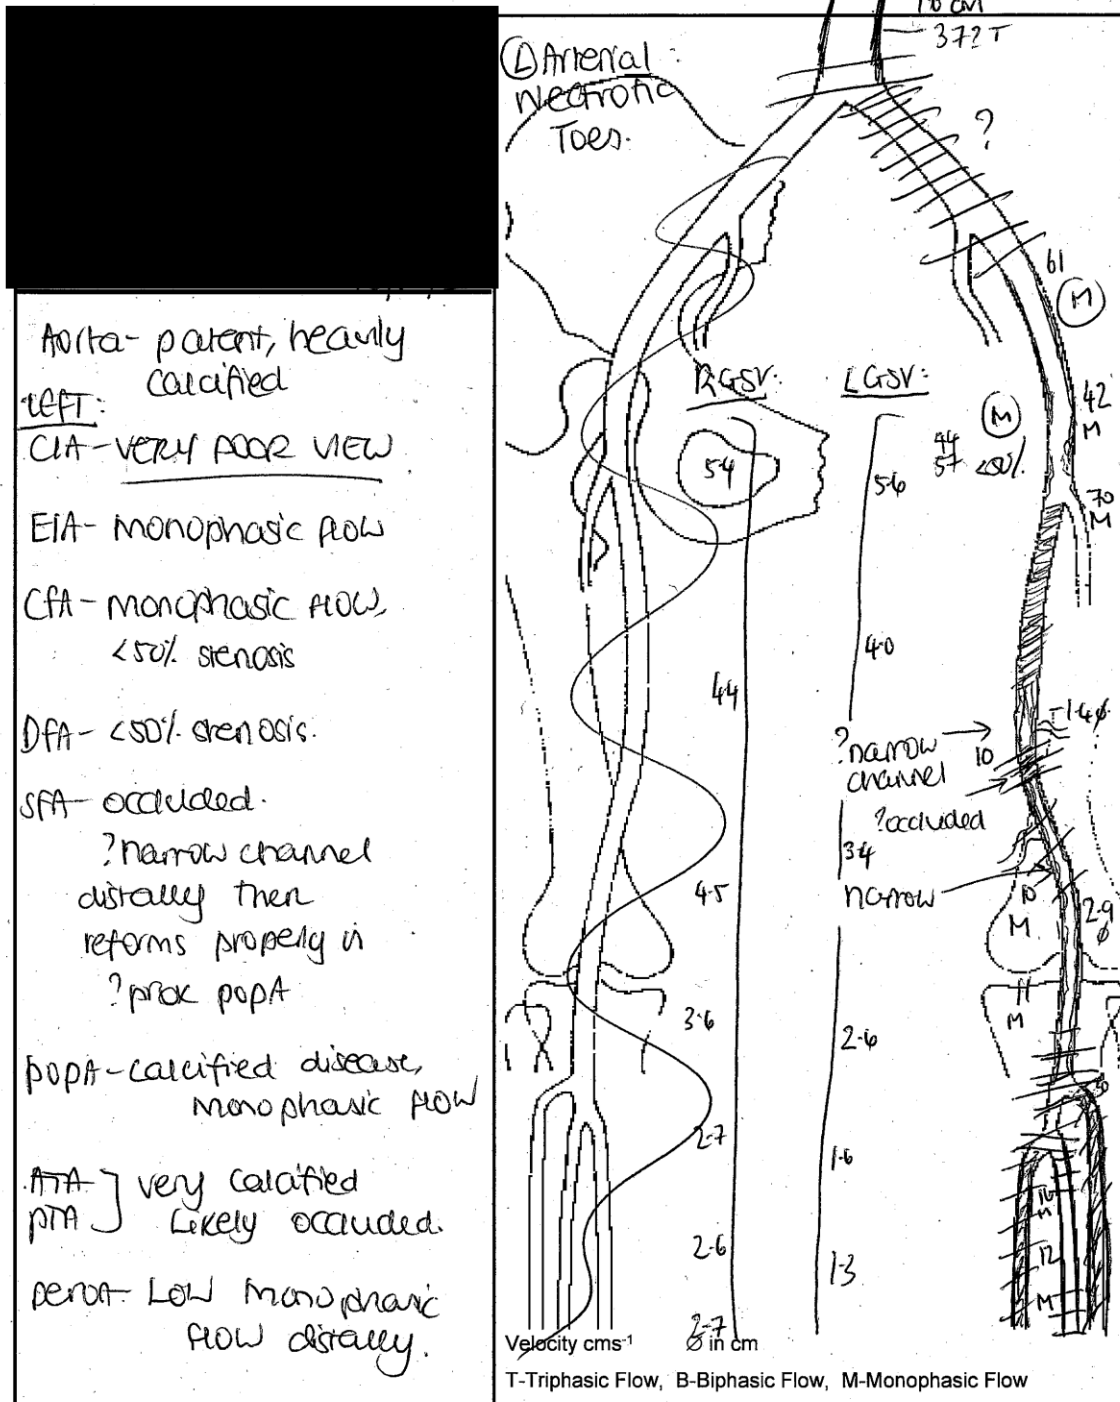 Aorta - patent, heavily
calcified
LEFT:
CIA - VERY POOR VIEW
EIA - monophasic flow
CFA - monophasic flow,
<50% stenosis
DFA - <50% stenosis.
SFA - occluded.
?narrow channel
distally then
reforms properly in
?prox popA
popA - calcified disease,
monophasic flow
ATA ] very calcified
PTA ] Likely occluded.
peroA - Low monophasic
flow distally.
(L) Arterial:
Necrotic
Toes.
37? T
?
61
M
42
M
70
M
RGSV:
5.4
4.4
4.5
3.6
2.7
2.6
2.7
LGSV:
5.6
4.0
3.4
2.6
1.6
1.3
M
44
57 <50%
1.4ø
?narrow
channel
10
?occluded
narrow
10
M
2.9
ø
11
M
16
M
12
M
Velocity cms⁻¹
Ø in cm
T-Triphasic Flow, B-Biphasic Flow, M-Monophasic Flow